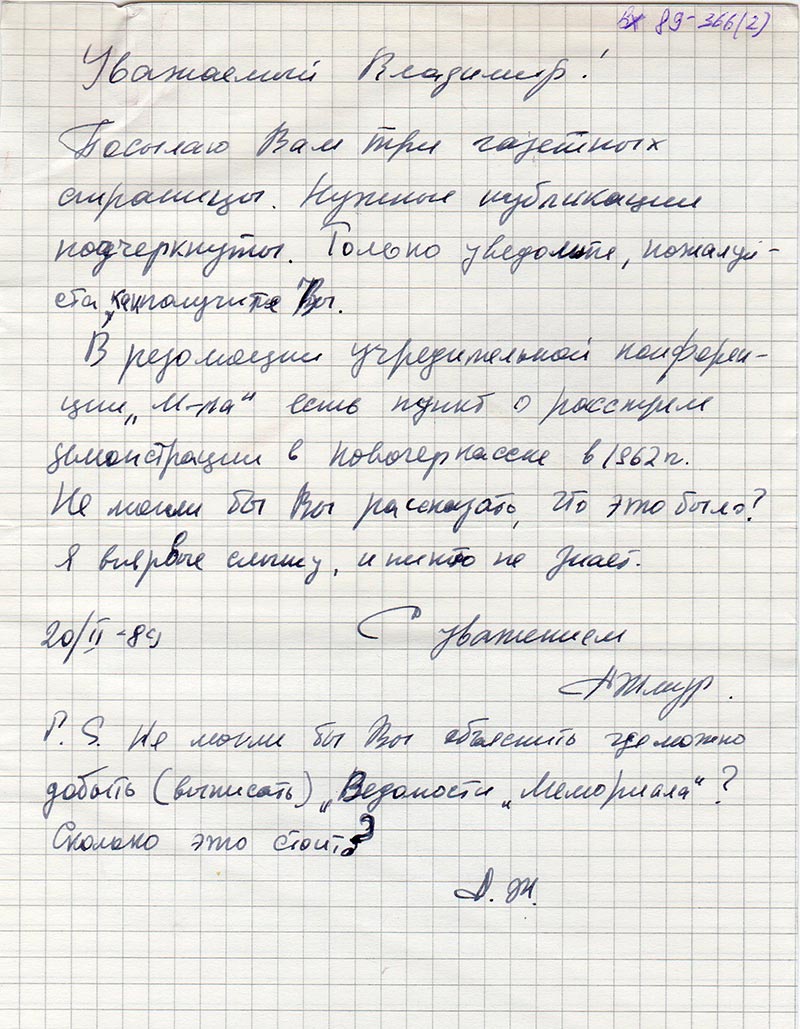 Вх 89-366(2)
Уважаемый Владимир!
Посылаю Вам три газетных
страницы. Нужные публикации
подчеркнуты. Только уведомите, пожалуй-
ста, как получите Вы.
В резолюции учредительной конферен-
ции „М-ла“ есть пункт о расстреле
демонстрации в Новочеркасске в 1962 г.
Не могли бы Вы рассказать, что это было?
Я впервые слышу, и никто не знает.
20/II -89 С уважением
АЖмур.
P. S. Не могли бы Вы объяснить где можно
добыть (выписать) „Ведомости „Мемориала“?
Сколько это стоит?
А. Ж.